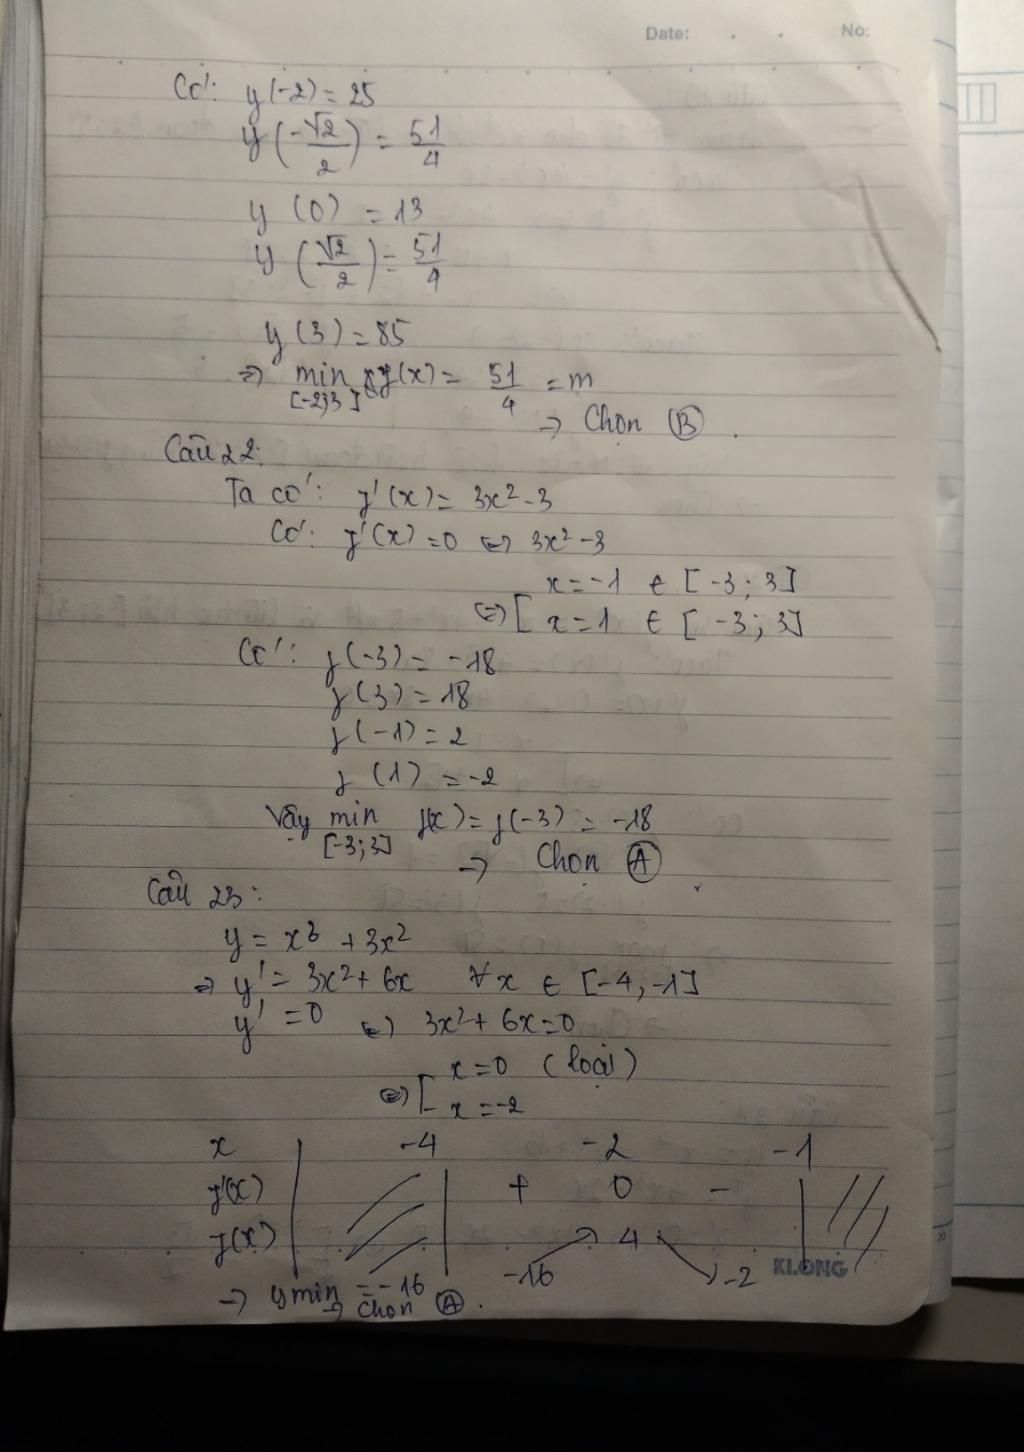 Date: . . No:
Có: y(-2) = 25
y(-√2/2) = 51/4
y(0) = 13
y(√2/2) = 51/4
y(3) = 85
=> min y(x) = 51/4 = m
[-2;3]
→ Chọn Ⓑ.
Câu 22:
Ta có: f'(x) = 3x² - 3
Có: f'(x) = 0 <=> 3x² - 3
x = -1 ∈ [-3; 3]
<=> [ x = 1 ∈ [-3; 3]
Có: f(-3) = -18
f(3) = 18
f(-1) = 2
f(1) = -2
Vậy min f(x) = f(-3) = -18
[-3;3]
→ Chọn Ⓐ
Câu 23:
y = x³ + 3x²
=> y' = 3x² + 6x ∀x ∈ [-4; -1]
y' = 0 <=> 3x² + 6x = 0
x = 0 (loại)
<=> [ x = -2
x -4 -2 -1
f'(x) + 0 -
f(x) -16 4 -2
KLONG
20
→ ymin = -16
→ Chọn Ⓐ.